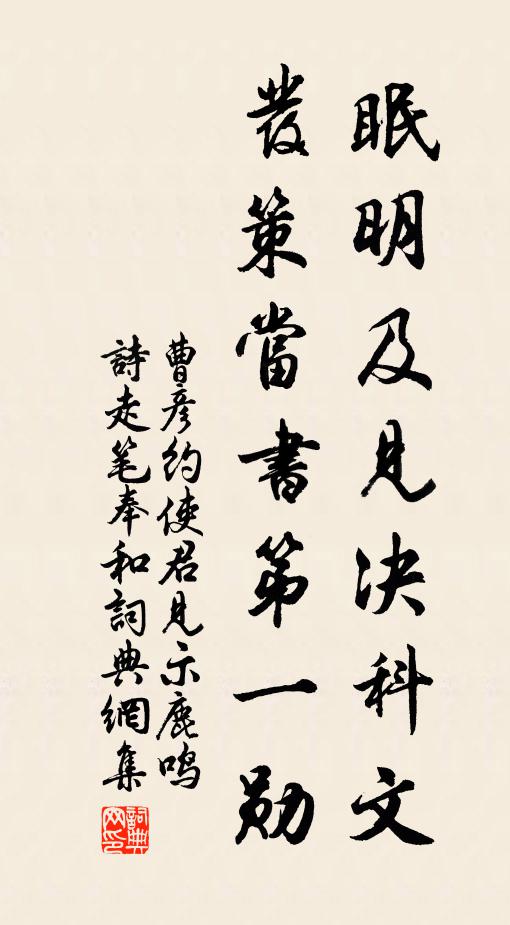 眠明及見决科文
發策當書第一勛
曹彦約使君見示鹿鳴
詩走笔奉和詞典網集
詞典
网印